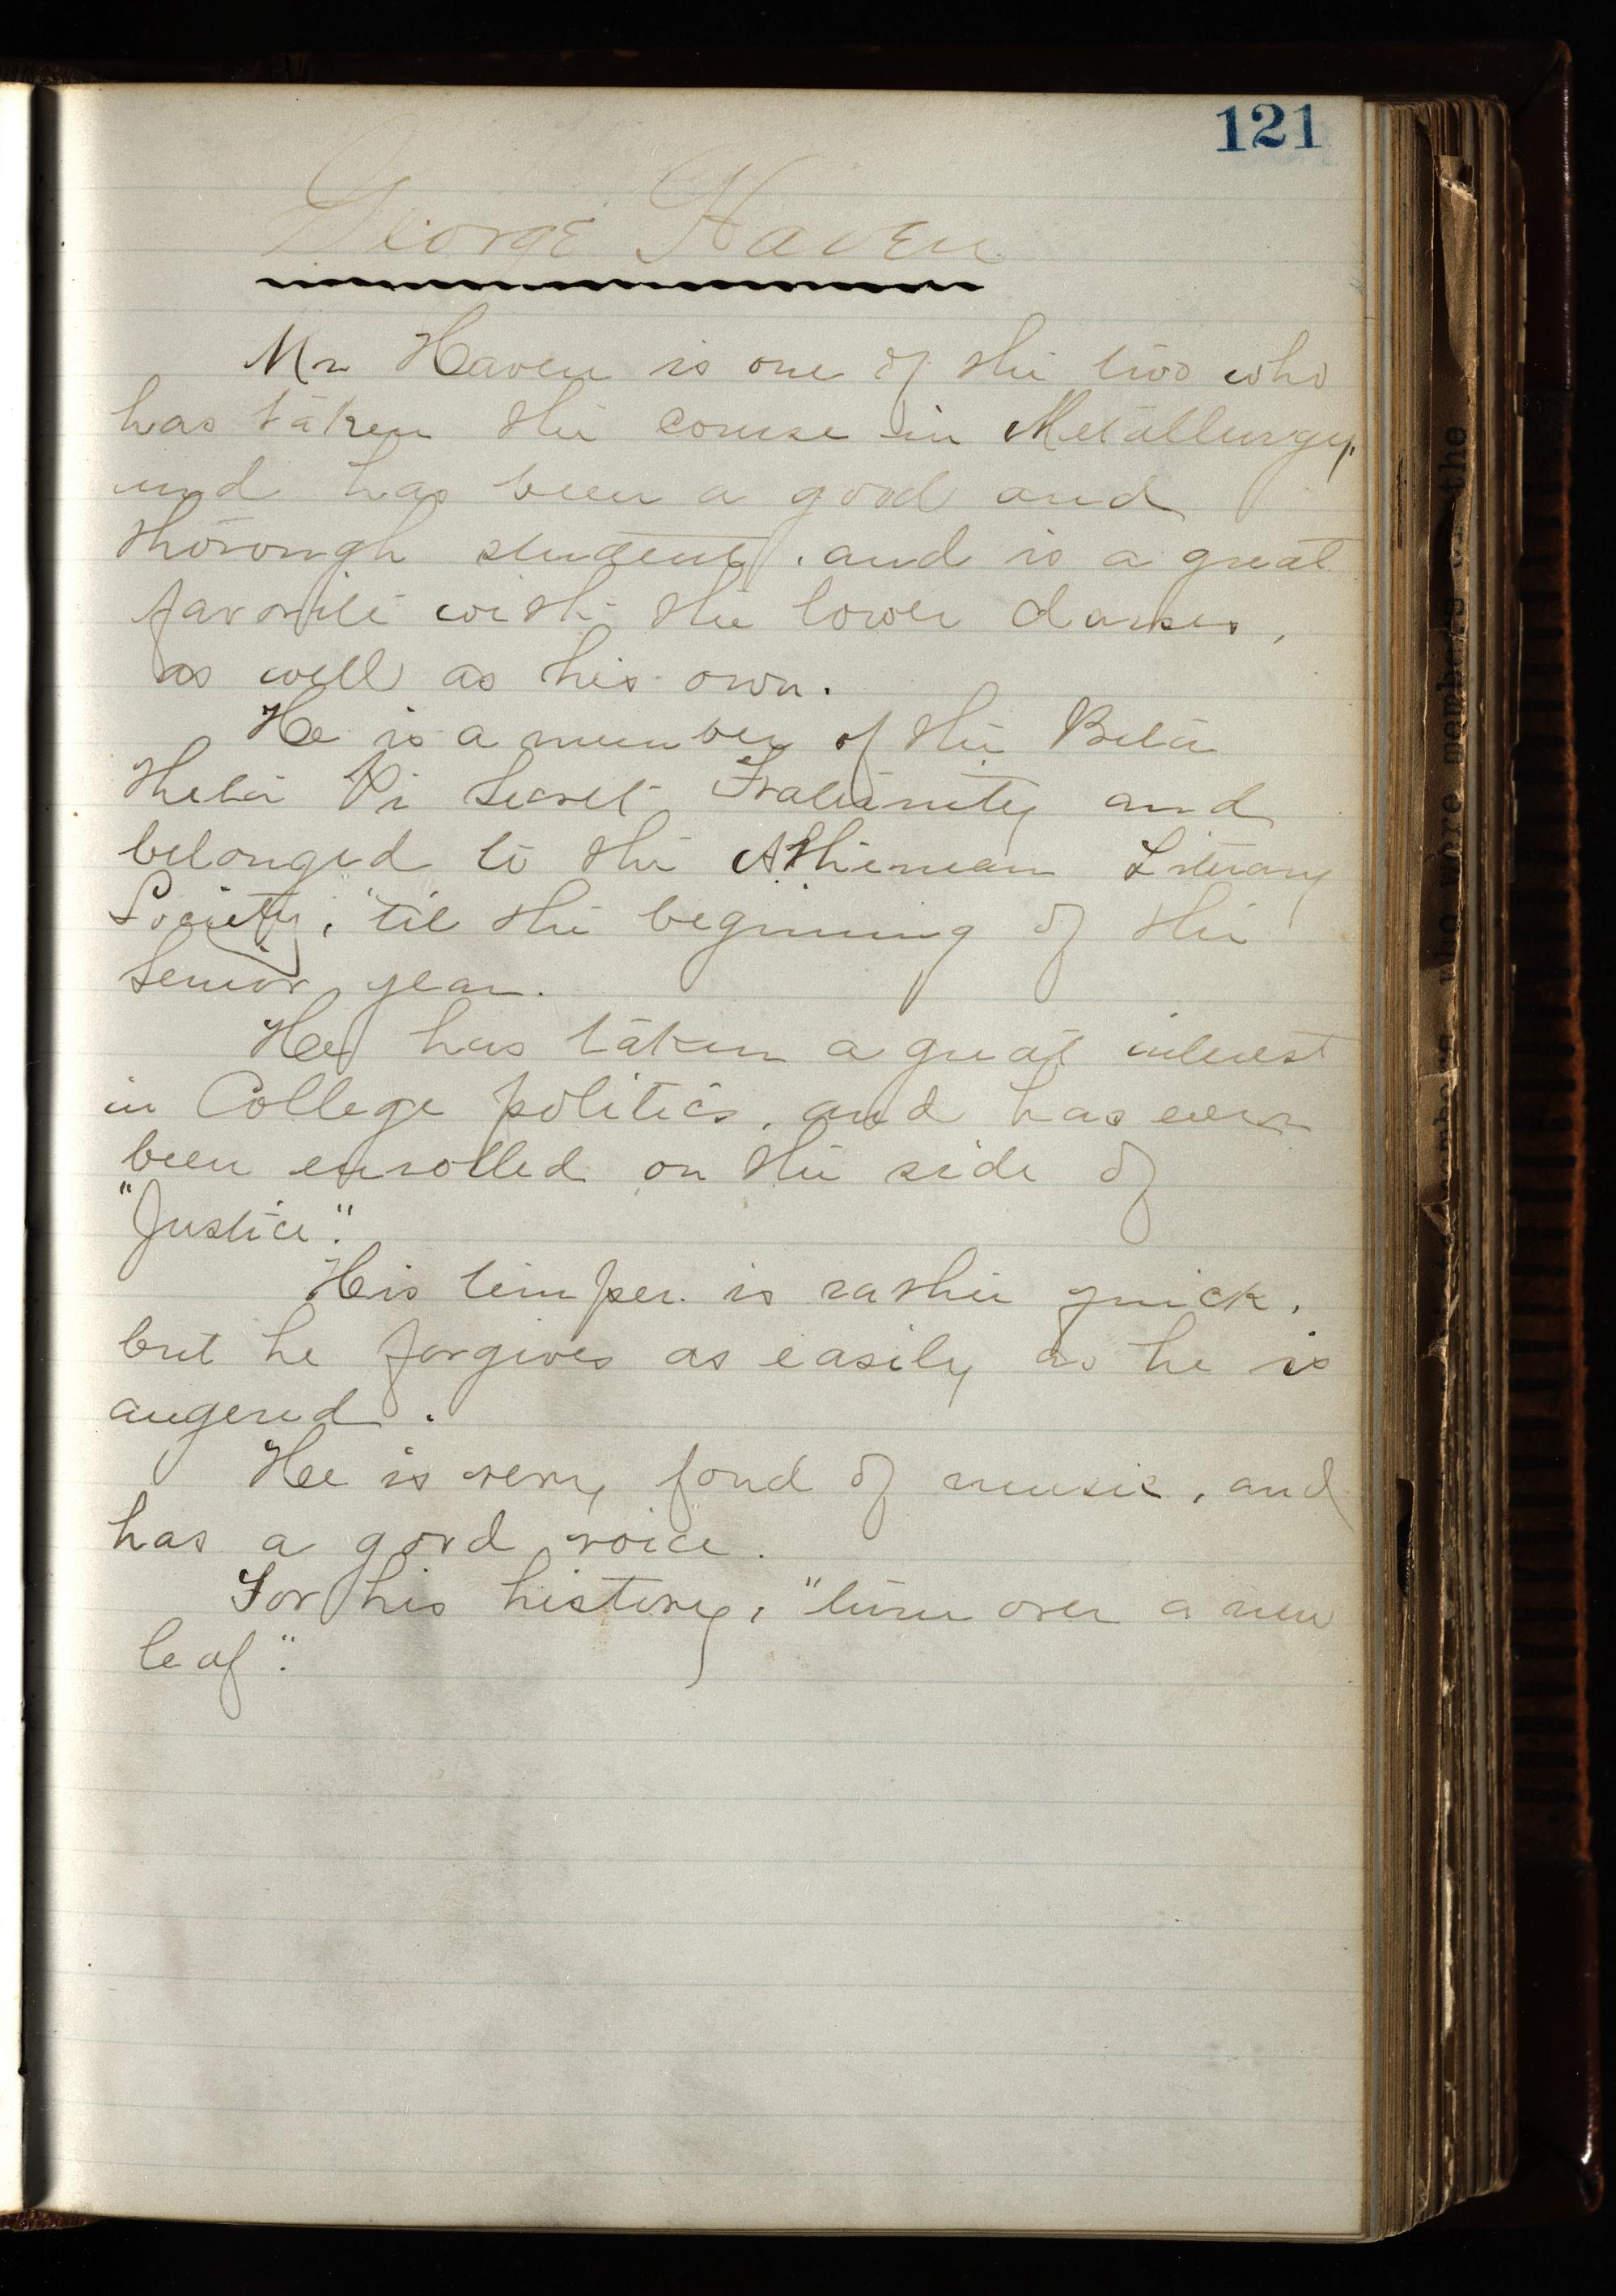 121
George Haven
Mr Haven is one of the two who
has taken the course in Metallurgy,
and has been a good and
thorough student, and is a great
favorite with the lower classes,
as well as his own.
He is a member of the Beta
Theta Pi Secret Fraternity and
belonged to the Athenean Literary
Society, 'til the beginning of the
Senior year.
He has taken a great interest
in College politics, and has ever
been enrolled on the side of
"Justice".
His temper is rather quick,
but he forgives as easily as he is
angered.
He is very fond of music, and
has a good voice.
For his history, "turn over a new
leaf".